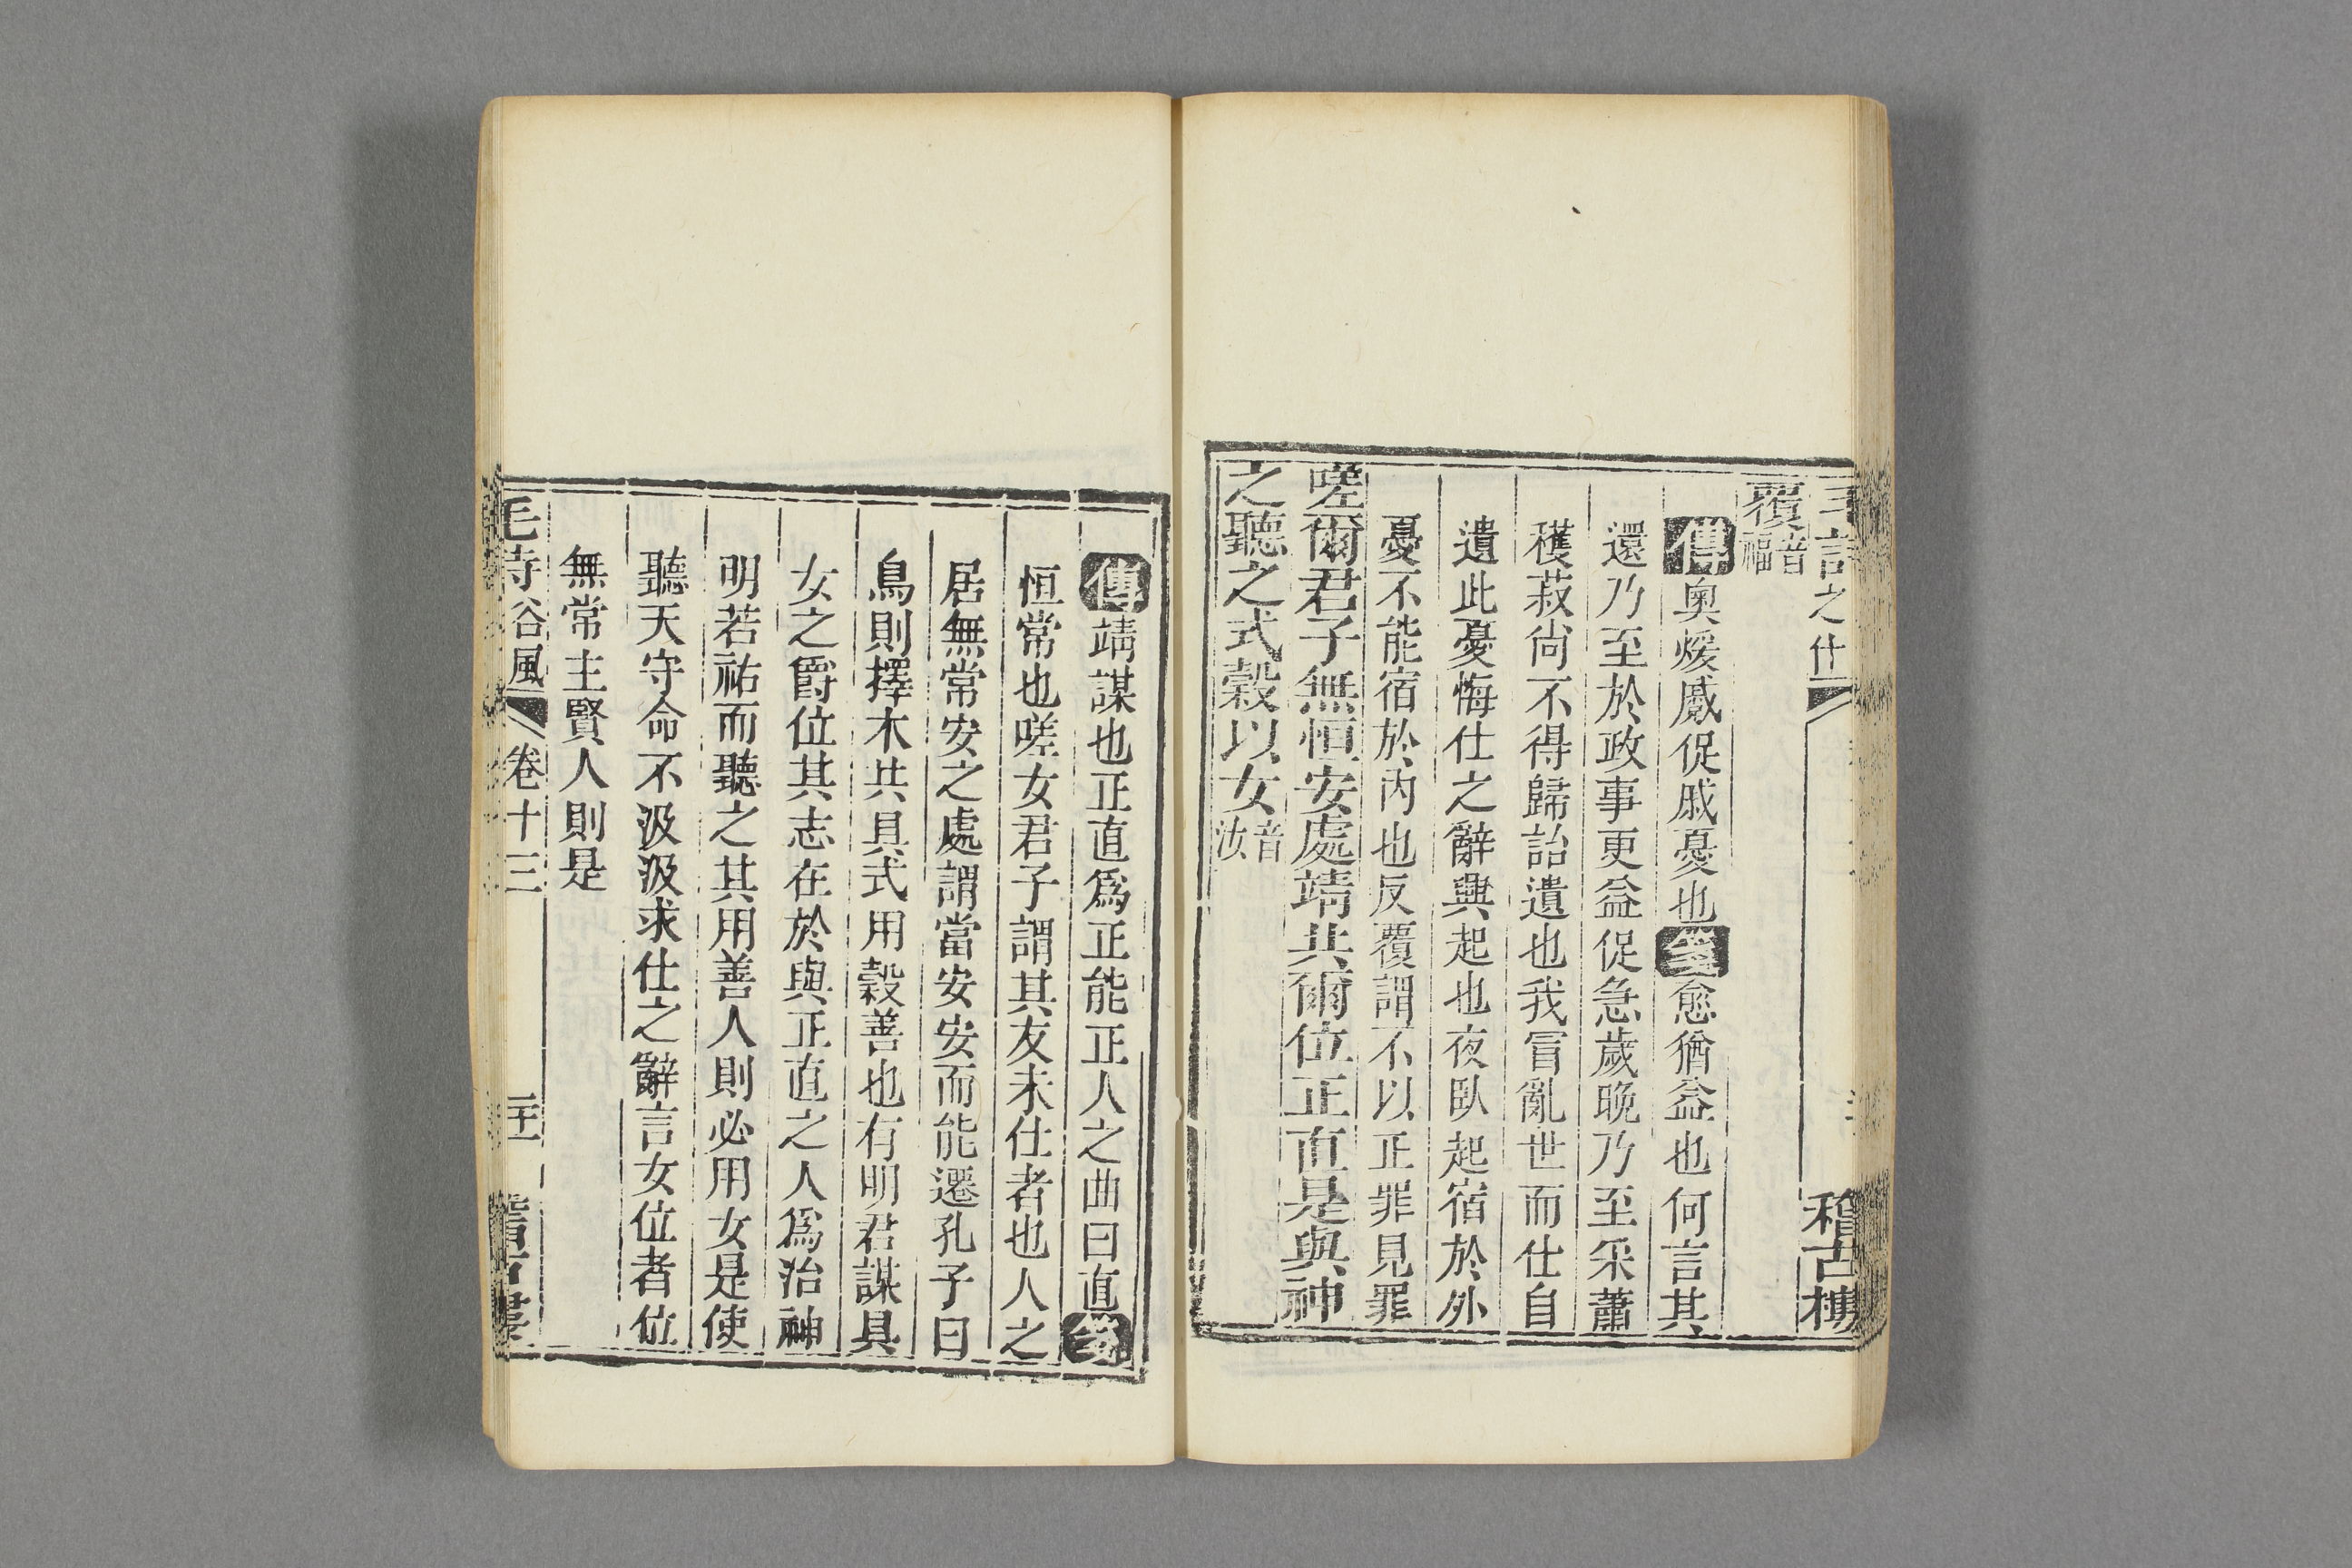 覆音福
傳奧煖蹙促戚憂也箋愈猶益也何言其
還乃至於政事更益促急歲晚乃至采蕭
穫菽尙不得歸詒遺也我冒亂世而仕自
遺此憂悔仕之辭興起也夜臥起宿於外
憂不能宿於內也反覆謂不以正罪見罪
嗟爾君子無恒安處靖共爾位正直是與神
之聽之式穀以女音汝
稽古樓
傳靖謀也正直爲正能正人之曲曰直箋
恒常也嗟女君子謂其友未仕者也人之
居無常安之處謂當安安而能遷孔子曰
鳥則擇木共具式用穀善也有明君謀具
女之爵位其志在於與正直之人爲治神
明若祐而聽之其用善人則必用女是使
聽天守命不汲汲求仕之辭言女位者位
無常主賢人則是
毛詩谷風 卷十三